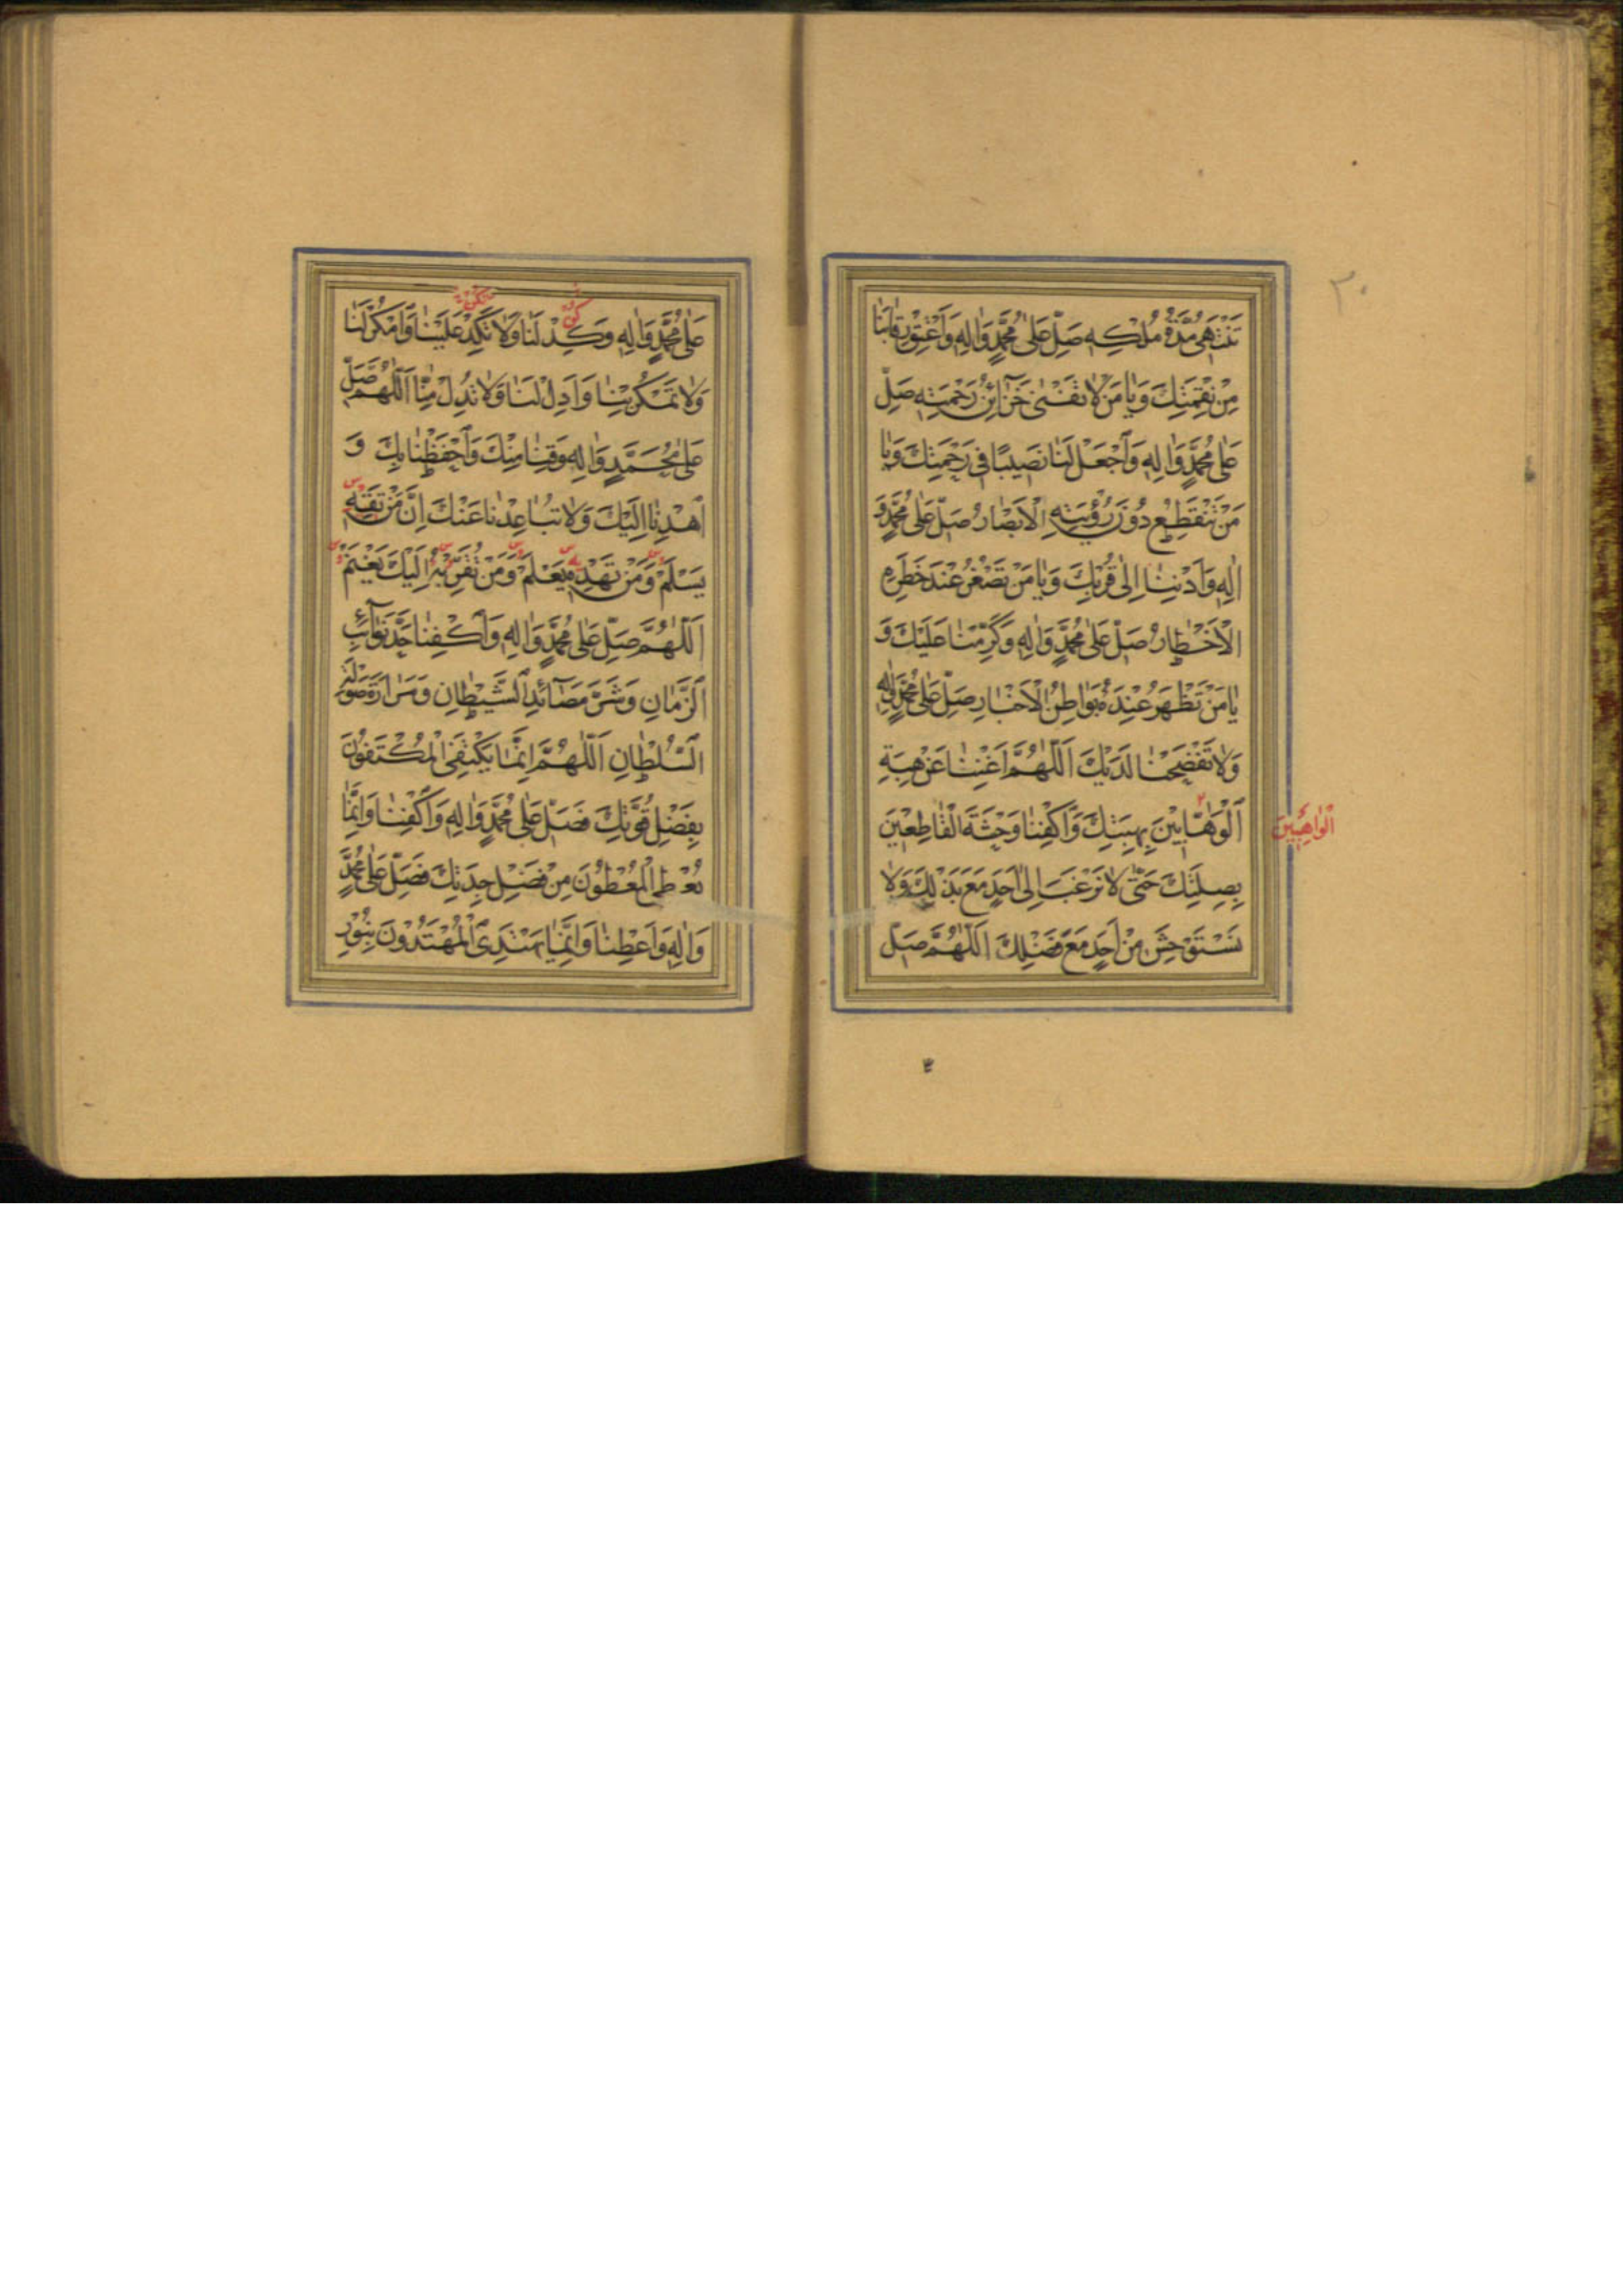 ٣٠
تَنْتَهِى مُدَّةُ مُلْكِهِ صَلِّ عَلىٰ مُحَمَّدٍ وَاٰلِهِ وَاَعْتِقْ رِقابَنا
مِنْ نَقِمَتِكَ وَيٰا مَنْ لاٰ تَفْنىٰ خَزٰآئِنُ رَحْمَتِهِ صَلِّ
عَلىٰ مُحَمَّدٍ وَاٰلِهِ وَاَجْعَلْ لَنٰا نَصيبًا فى رَحْمَتِكَ وَيٰا
مَنْ تَنْقَطِعُ دُونَ رُؤْيَتِهِ الْاَبْصٰارُ صَلِّ عَلىٰ مُحَمَّدٍ وَ
اٰلِهِ وَاَدْنِنٰا اِلىٰ قُرْبِكَ وَيٰا مَنْ تَصْغُرُ عِنْدَ خَطَرِهِ
الْاَخْطٰارُ صَلِّ عَلىٰ مُحَمَّدٍ وَاٰلِهِ وَكَرِّمْنٰا عَلَيْكَ وَ
يٰا مَنْ تَظْهَرُ عِنْدَهُ بَوٰاطِنُ الْاَخْبٰارِ صَلِّ عَلىٰ مُحَمَّدٍ وَاٰلِهِ
وَلاٰ تَفْضَحْنٰا لَدَيْكَ اَللّٰهُمَّ اَغْنِنٰا عَنْ هِبَةِ
اَلْوَهّٰابِيْنَ بِهِبَتِكَ وَاَكْفِنٰا وَحْشَةَ الْقٰاطِعِيْنَ
الْوٰاهِبِيْنَ
بِصِلَتِكَ حَتّىٰ لاٰ نَرْغَبَ اِلىٰ اَحَدٍ مَعَ بَذْلِكَ وَلاٰ
نَسْتَوْحِشَ مِنْ اَحَدٍ مَعَ فَضْلِكَ اَللّٰهُمَّ صَلِّ
عَلىٰ مُحَمَّدٍ وَاٰلِهِ وَكِدْ لَنٰا وَلاٰ تَكِدْ عَلَيْنٰا وَامْكُرْ لَنٰا
وَلاٰ تَمْكُرْ بِنٰا وَاَدِلْ لَنٰا وَلاٰ تُدِلْ مِنّٰا اَللّٰهُمَّ صَلِّ
عَلىٰ مُحَمَّدٍ وَاٰلِهِ وَقِنٰا مِنْكَ وَاَحْفَظْنٰا بِكَ وَ
اَهْدِنٰا اِلَيْكَ وَلاٰ تُبٰاعِدْنٰا عَنْكَ اِنَّ مَنْ تَقِهِ
يَسْلَمْ وَمَنْ تَهْدِهِ يَعْلَمْ وَمَنْ تُقَرِّبْهُ اِلَيْكَ يَغْنَمْ
اَللّٰهُمَّ صَلِّ عَلىٰ مُحَمَّدٍ وَاٰلِهِ وَاَكْفِنٰا حَدَّ نَوٰآئِبِ
اَلزَّمٰانِ وَشَرَّ مَصٰآئِدِ اَلشَّيْطٰانِ وَمَرٰارَةَ صَوْلَةِ
السُّلْطٰانِ اَللّٰهُمَّ اِنَّمٰا يَكْتَفِى الْمُكْتَفُوْنَ
بِفَضْلِ قُوَّتِكَ فَصَلِّ عَلىٰ مُحَمَّدٍ وَاٰلِهِ وَاَكْفِنٰا وَاِنَّمٰا
يُعْطِى الْمُعْطُوْنَ مِنْ فَضْلِ جِدَتِكَ فَصَلِّ عَلىٰ مُحَمَّدٍ
وَاٰلِهِ وَاَعْطِنٰا وَاِنَّمٰا يَهْتَدِى الْمُهْتَدُوْنَ بِنُوْرِ